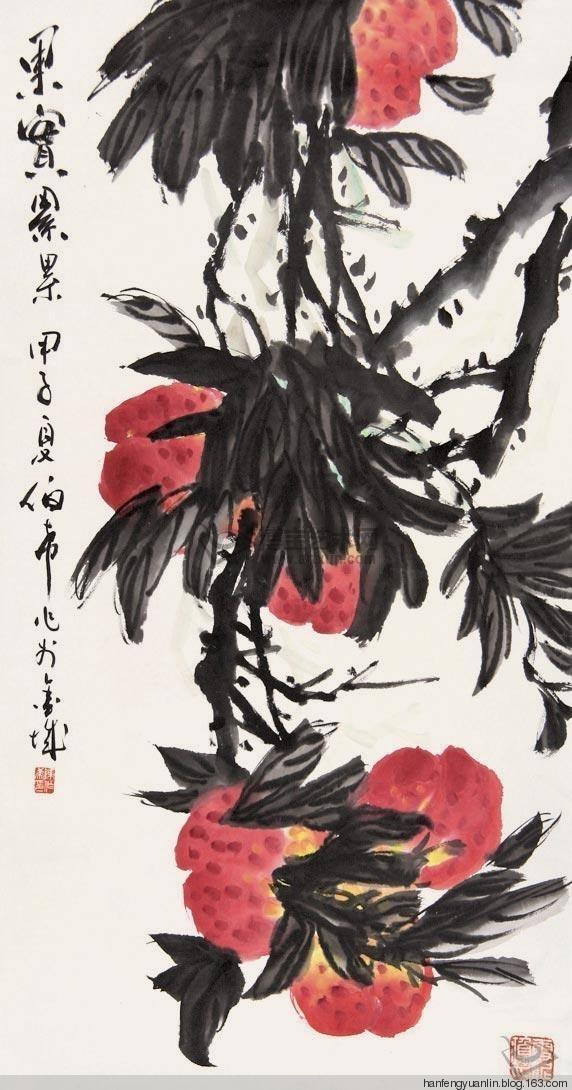 果實累累 甲子夏 伯希作於金城
hanfengyuanlin.blog.163.com